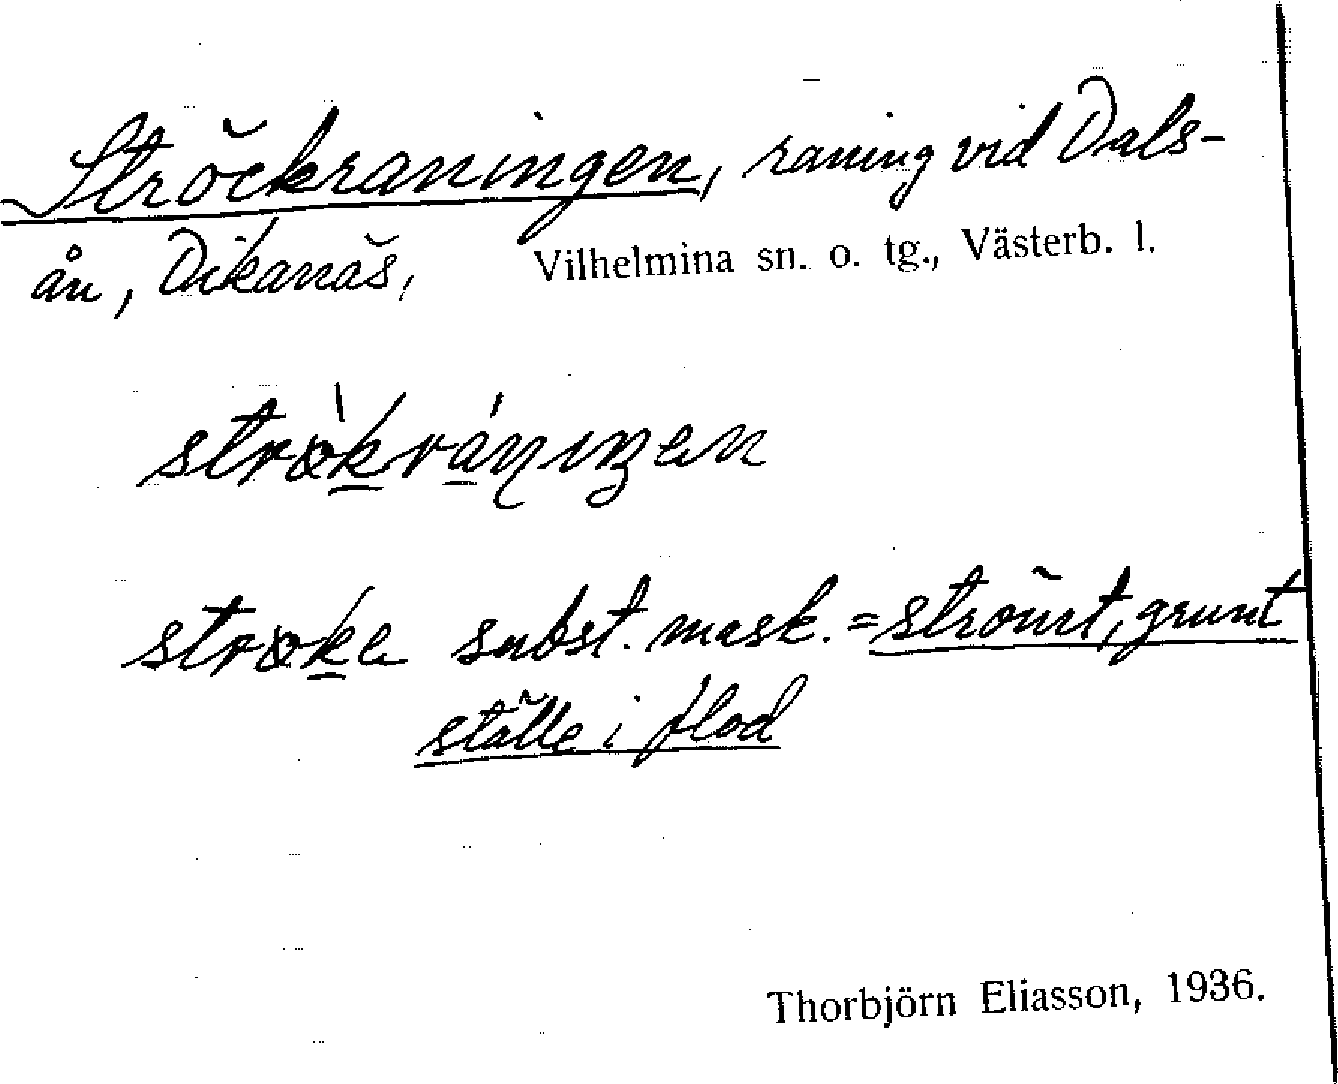 Ströckraningen, raning vid Dals-
ån, Dikanäs, Vilhelmina sn. o. tg., Västerb. l.
strø̀krániŋen
strøke subst. mask. = strömt, grunt
ställe i flod
Thorbjörn Eliasson, 1936.